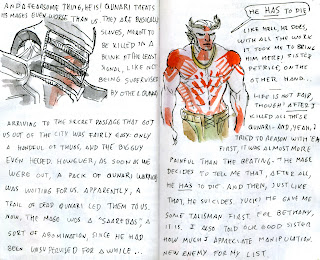 AND A FEARSOME THING, HE IS! QUNARI TREATS
ITS MAGES EVEN WORSE THAN US. THEY ARE BASICALLY
SLAVES, MEANT TO
BE KILLED IN A
BLINK AT THE LEAST
SIGNAL, LIKE NOT
BEING SUPERVISED
BY OTHER QUNARI.
ARRIVING TO THE SECRET PASSAGE THAT GOT
US OUT OF THE CITY WAS FAIRLY EASY. ONLY
A HANDFUL OF THUGS, AND THE BIG GUY
EVEN HELPED. HOWEVER, AS SOON AS WE
WERE OUT, A PACK OF QUNARI WARRIORS
WAS WAITING FOR US. APPARENTLY, A
TRAIL OF DEAD QUNARI LED THEM TO US.
NOW, THE MAGE WAS A "SAAREBAS", A
SORT OF ABOMINATION SINCE HE HAD
BEEN UNSUPERVISED FOR A WHILE...
HE HAS TO DIE
LIKE HELL HE DOES,
WITH ALL THE WORK
IT TOOK ME TO BRING
HIM HERE! SISTER
PETRICE, ON THE
OTHER HAND...
LIFE IS NOT FAIR,
THOUGH! AFTER I
KILLED ALL THESE
QUNARI - AND, YEAH, I
TRIED TO REASON WITH 'EM
FIRST, IT WAS ALMOST MORE
PAINFUL THAN THE BEATING - THE MAGE
DECIDED TO TELL ME THAT, AFTER ALL,
HE HAS TO DIE. AND THEN, JUST LIKE
THAT, HE SUICIDES. YUCK! HE GAVE ME
SOME TALISMAN FIRST. FOR BETHANY,
IT IS. I ALSO TOLD OUR GOOD SISTER
HOW MUCH I APPRECIATE MANIPULATION.
NEW ENEMY FOR MY LIST.